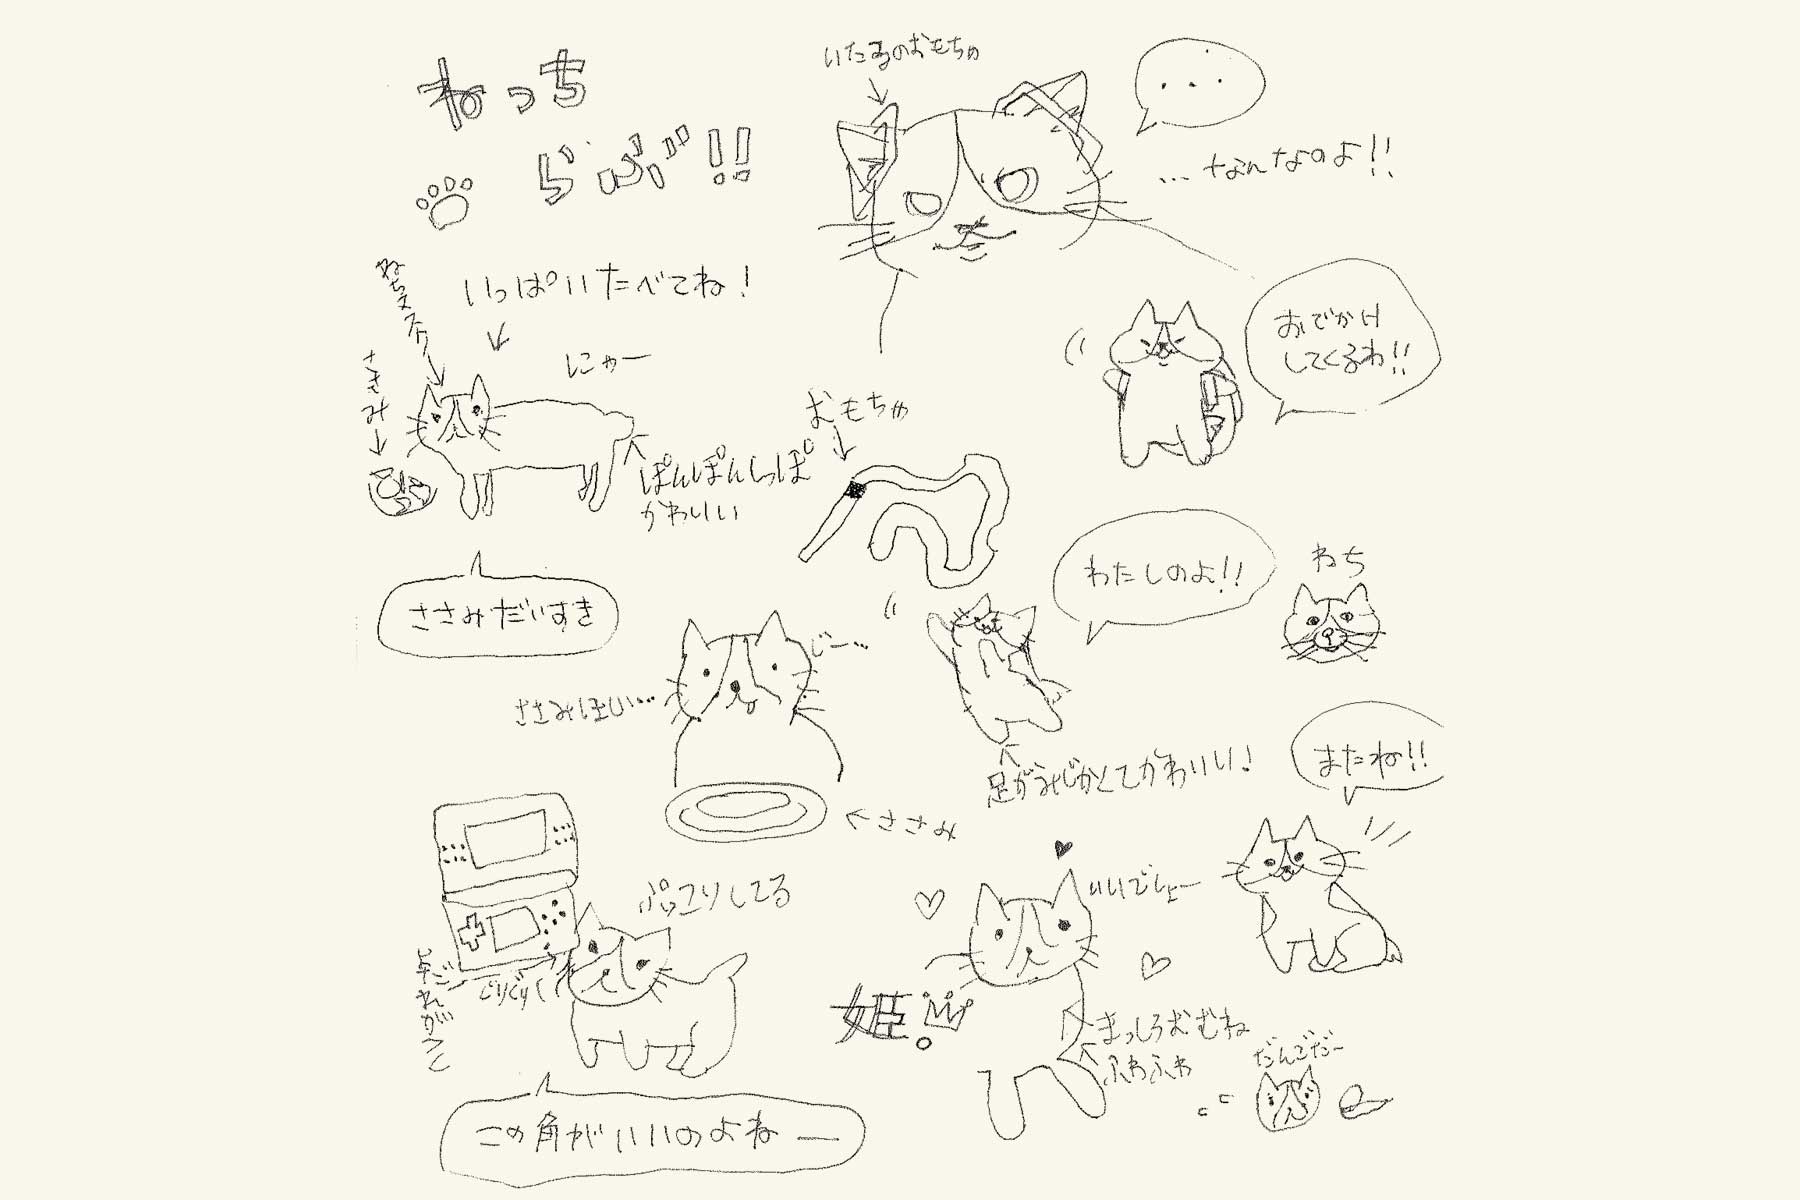 ねっち
らぶ!!
いたるのおもちゃ
...
...なんなのよ!!
いっぱいたべてね!
ささみ
にゃー
おでかけ
してくるわ!!
おもちゃ
ぽんぽんしっぽ
かわいい
ささみだいすき
わたしのよ!!
ねち
じー…
ささみほしい…
足がみじかくてかわいい!
またね!!
←ささみ
ぷっこりしてる
いいでしょー
ぐりぐり
姫
まっしろおむね
ふわふわ
だんごだー
この角がいいのよねー